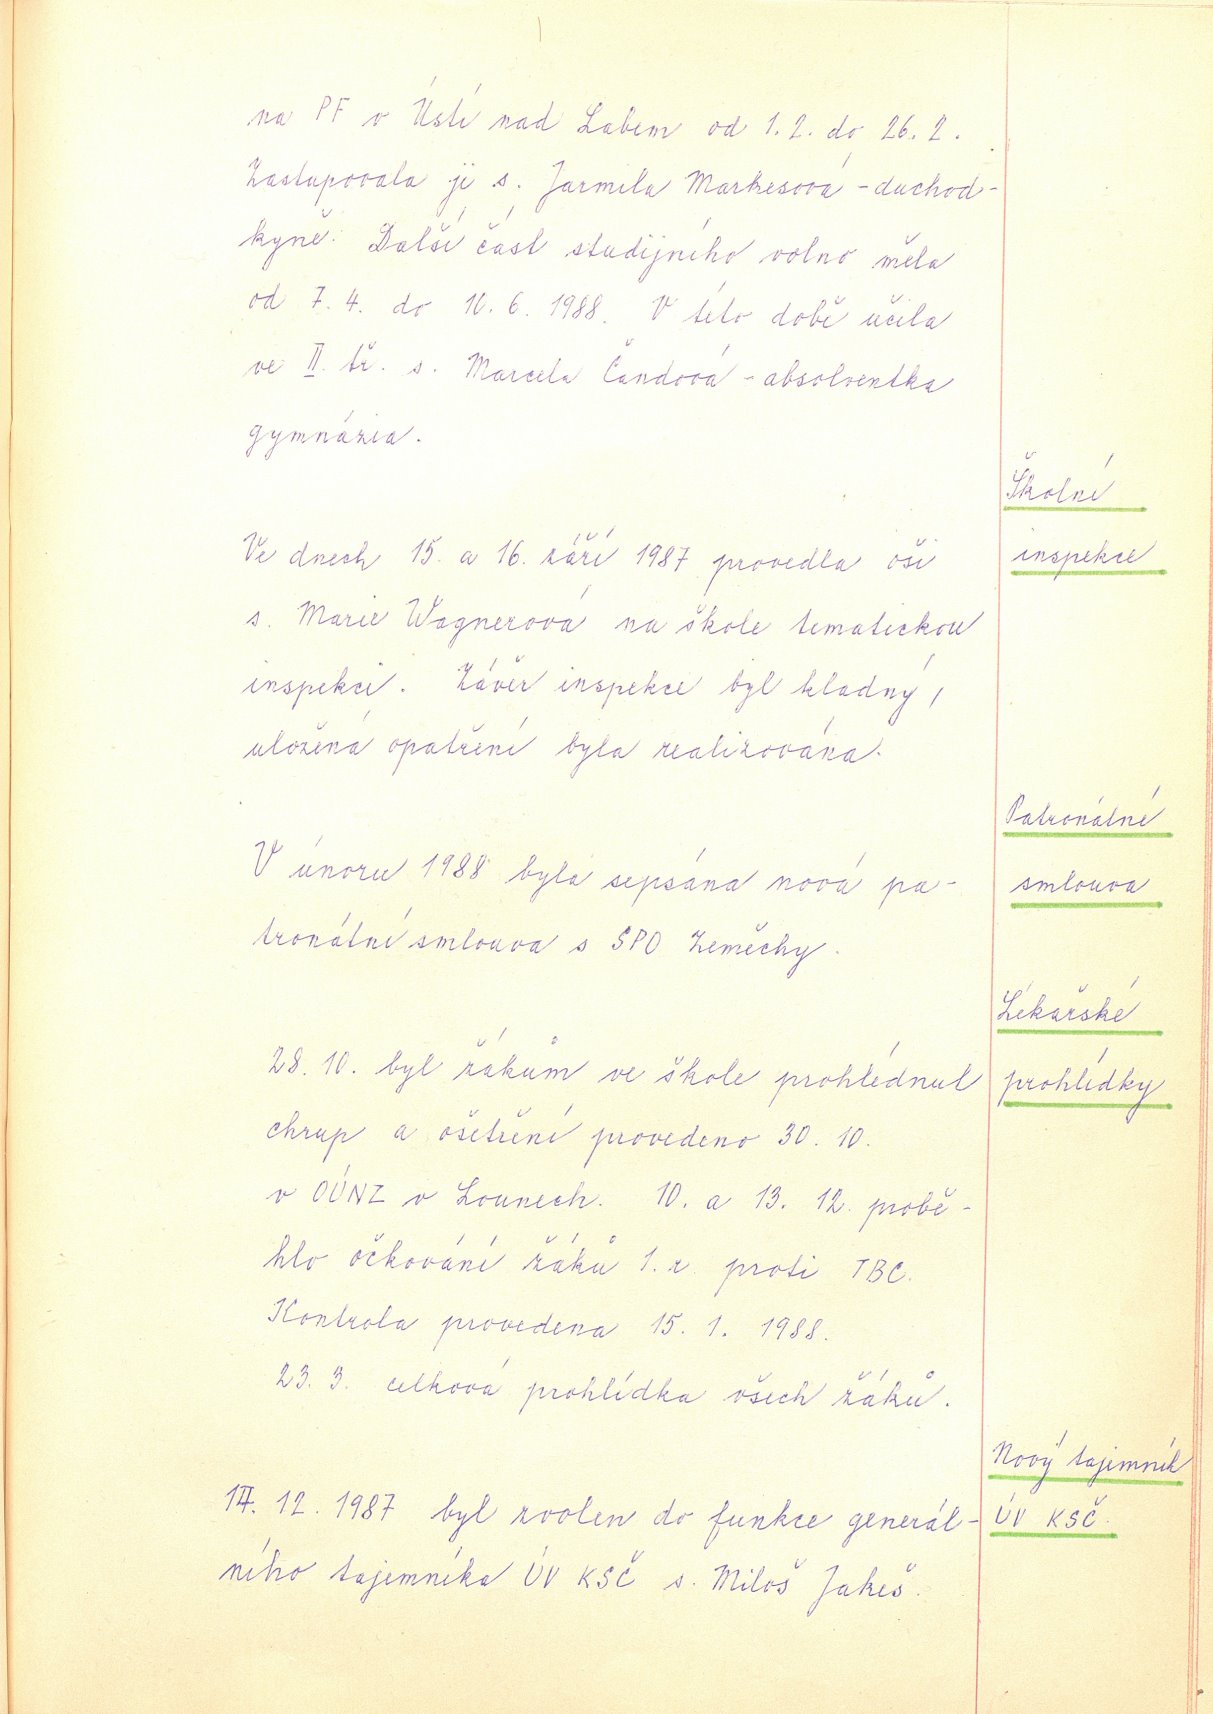 na PF v Ústí nad Labem od 1. 2. do 26. 2.
Zastupovala ji s. Jarmila Markesová - duchod-
kyně. Další část studijního volno měla
od 7. 4. do 10. 6. 1988. V této době učila
ve II. tř. s. Marcela Čandová - absolventka
gymnázia.
Školní
inspekce
Ve dnech 15. a 16. září 1987 provedla oši
s. Marie Wagnerová na škole tematickou
inspekci. Závěr inspekce byl kladný,
uložená opatření byla realizována.
Patronátní
smlouva
V únoru 1988 byla sepsána nová pa-
tronátní smlouva s SPO Zeměchy.
Lékařské
prohlídky
28. 10. byl žákům ve škole prohlédnut
chrup a ošetření provedeno 30. 10.
v OÚNZ v Lounech. 10. a 13. 12. probě-
hlo očkování žáků 1. r. proti TBC.
Kontrola provedena 15. 1. 1988.
23. 3. celková prohlídka všech žáků.
Nový tajemník
ÚV KSČ
12. 1987 byl zvolen do funkce generál-
ního tajemníka ÚV KSČ s. Miloš Jakeš.